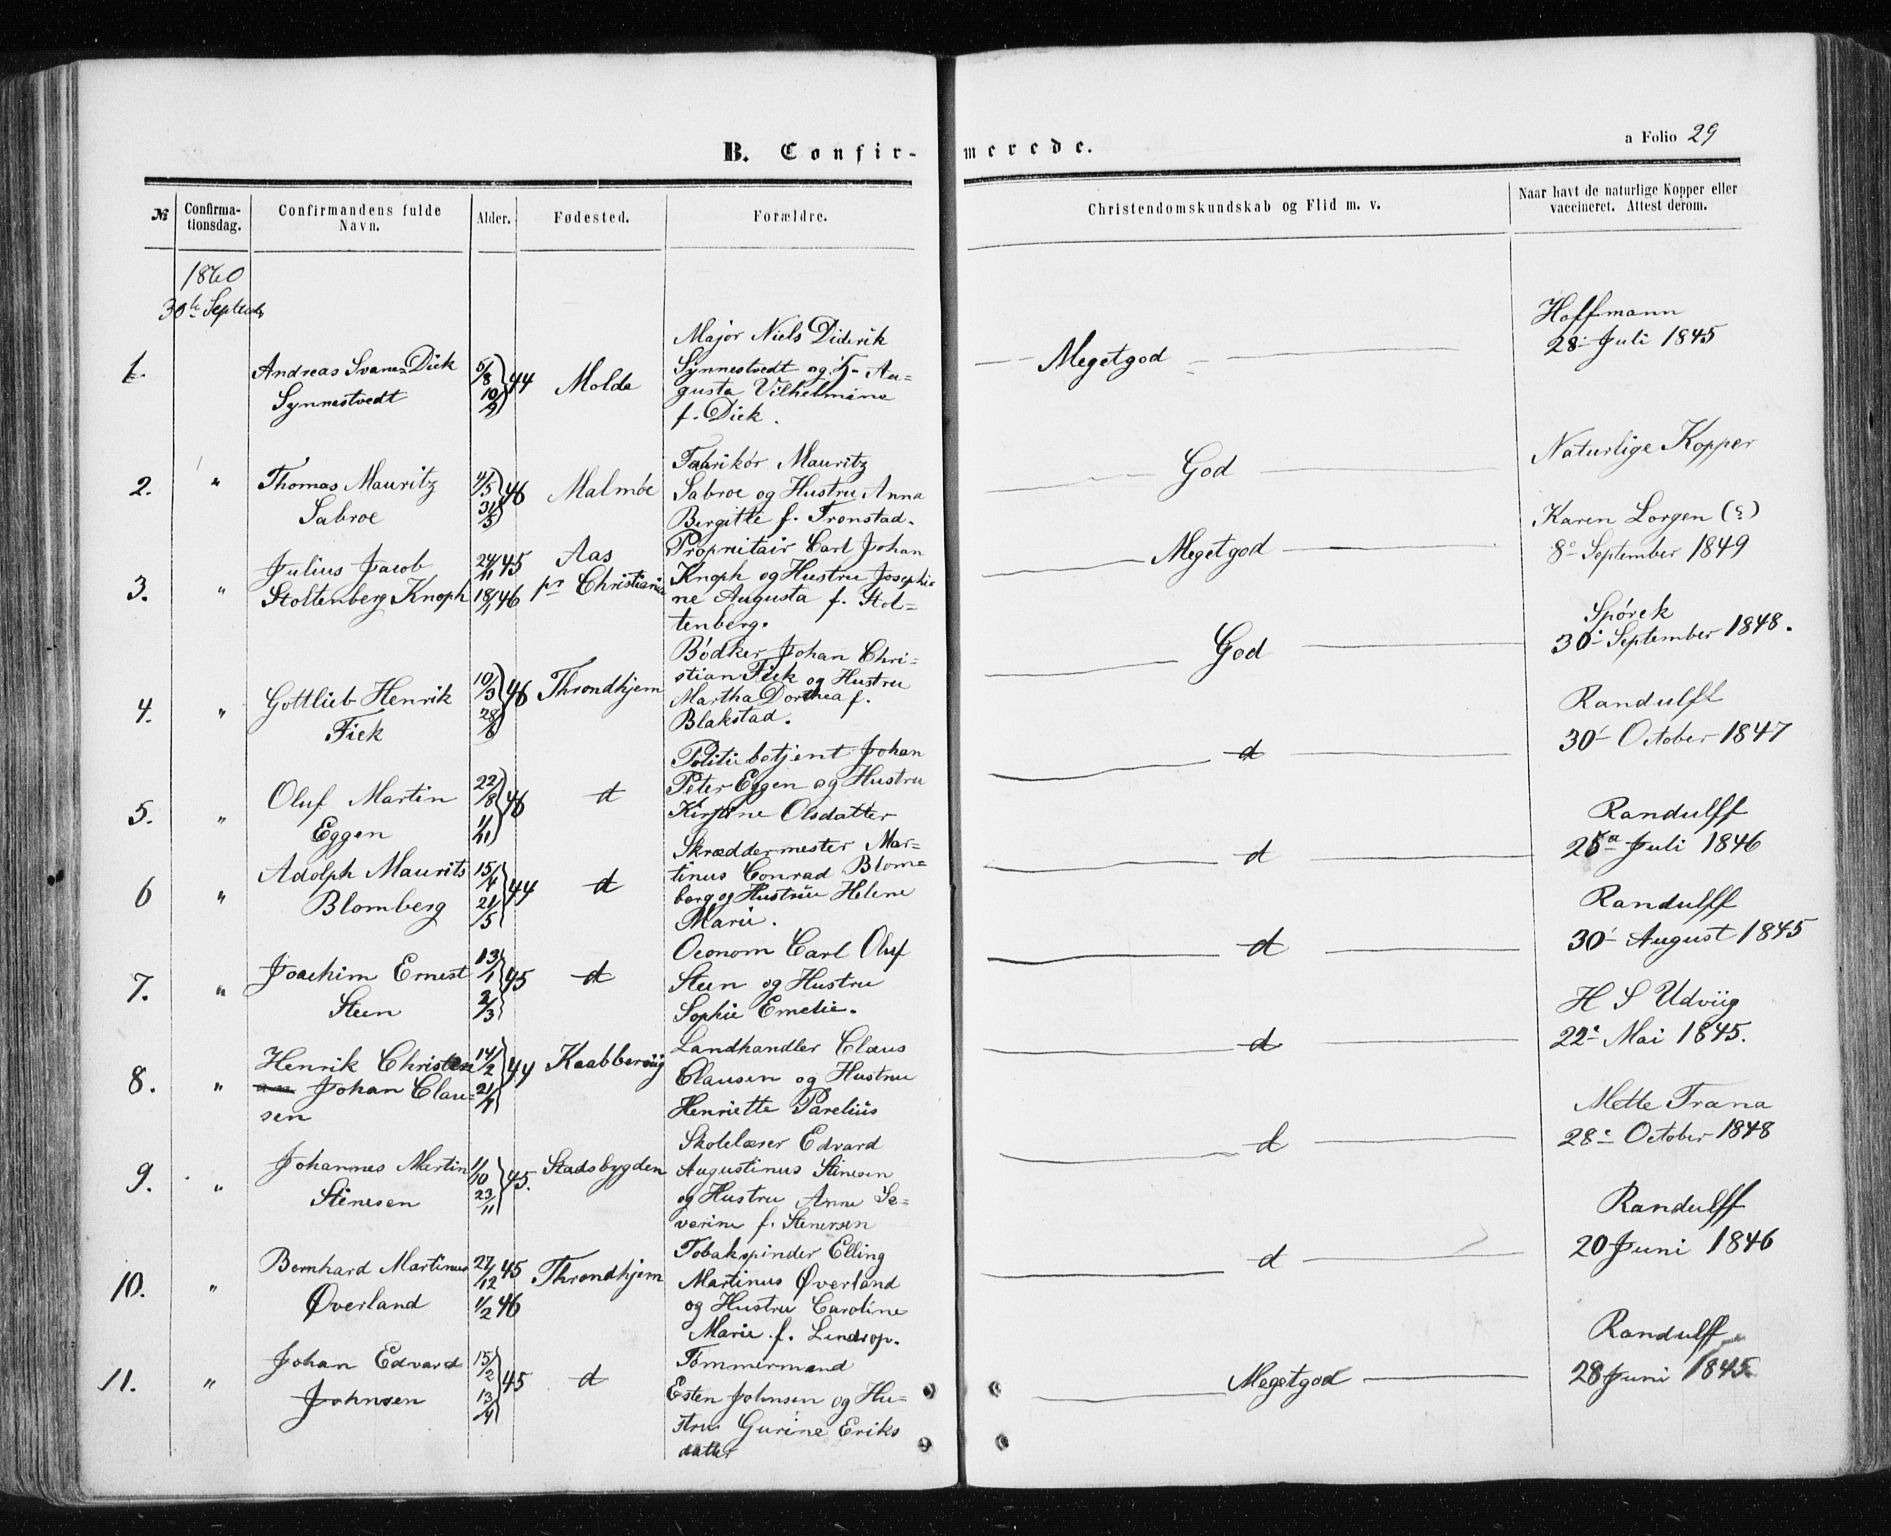 B. Confir-
merede.
a Folio 29
№
Confirma-
tionsdag.
Confirmandens fulde
Navn.
Alder.
Fødested.
Forældre.
Christendomskundskab og Flid m. v.
Naar havt de naturlige Kopper eller
vaccineret. Attest derom.
1860
30te Septemb
1.
Andreas Svane Dick
Synnestvedt
5/8
10/9
44
Molde
Major Niels Diderik
Synnestvedt og H. Au-
gusta Vilhelmine
f. Dick.
Megetgod
Hoffmann
28. Juli 1845
2.
"
Thomas Mauritz
Sabroe
11/5
31/5
46
Malmöe
Fabrikör Mauritz
Sabroe og Hustru Anna
Bergitte f. Tronstad.
God
Naturlige Kopper
3.
"
Julius Jacob
Stoltenberg Knoph
24/11 45
18/1 46
Aas
pr Christiania
Proprietair Carl Johan
Knoph og Hustru Josephi-
ne Augusta f. Stol-
tenberg.
Megetgod
Karen Lorgen (?)
8. September 1849
4.
"
Gottlieb Henrik
Fick
10/3
28/6
46
Throndhjem
Bödker Johan Chri-
stian Fick og Hustru
Martha Dorthea f.
Blakstad.
God
Spörck
30. September 1848.
5.
"
Oluf Martin
Eggen
22/8
1/11
46
d
Politibetjent Johan
Peter Eggen og Hustru
Kirstine Olsdatter
d
Randulff
30. October 1847
6
"
Adolph Maurits
Blomberg
15/4
21/5
44
d
Skræddermester Mar-
tinus Conrad Blom-
berg og Hustru Helene
Marie.
d
Randulff
28 Juli 1846
7.
"
Joachim Ernest
Steen
13/1
2/3
45
d
Oconom Carl Oluf
Steen og Hustru
Sophie Emelie.
d
Randulff
30. August 1845
8.
"
Henrik Christen
Johan Clau-
sen
14/2
21/4
44
Kaabbervüg
Landhandler Claus
Clausen og Hustru
Henriette Parelius
d
H S Udviig
22. Mai 1845.
9.
"
Johannes Martin
Stinesen
11/10
23/11
45.
Stadsbygden
Skolelærer Edvard
Augustinus Stinesen
og Hustru Anne Se-
verine f. Stenersen
d
Mette Trana
28. October 1848
10.
"
Bernhard Martinus
Øverland
27/12 45
1/2 46
Throndhjem
Tobakspinder Elling
Martinus Øverland
og Hustru Caroline
Marie f. Lindrop.
d
Randulff
20 Juni 1846
11.
"
Johan Edvard
Johnsen
15/2
13/4
45
d
Tömmermand
Esten Johnsen og Hu-
stru Gurine Eriks
datter
Megetgod
Randulff
28 Juni 1845.